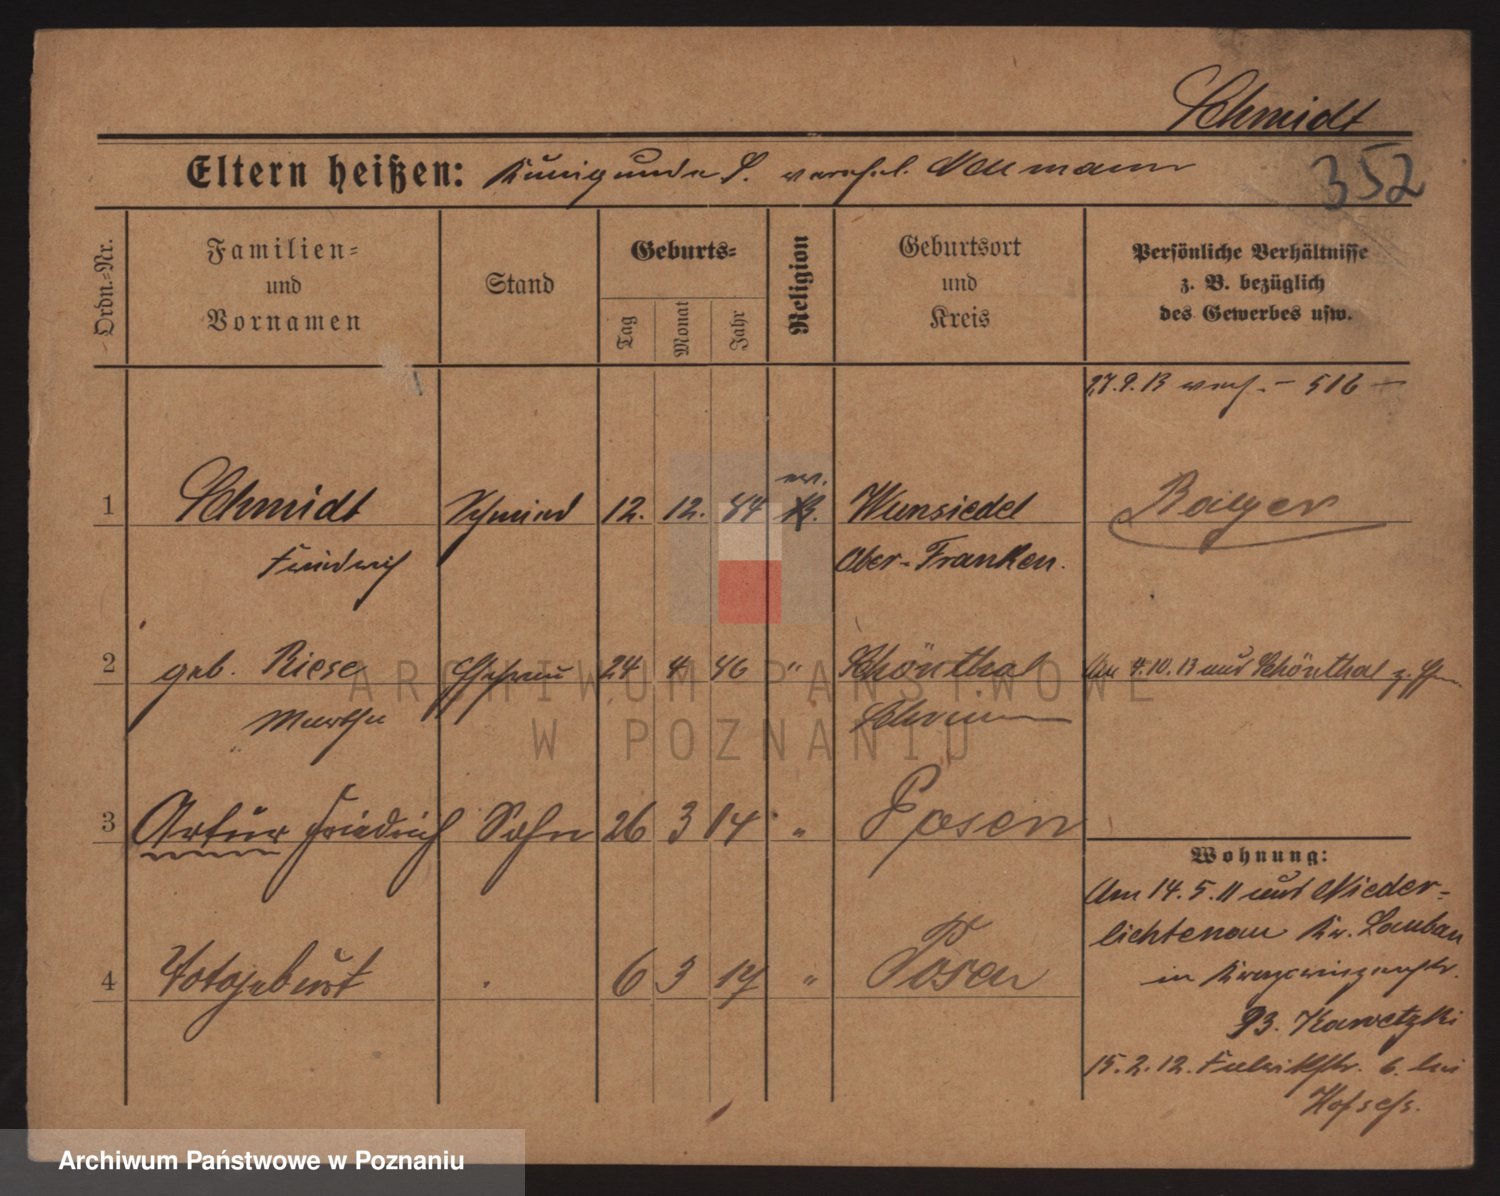 Schmidt
Eltern heißen: Kunigunde S. verehel. Neumann
352
Ordn.-Nr.
Familien- und Vornamen
Stand
Geburts-
Tag
Monat
Jahr
Religion
Geburtsort und Kreis
Persönliche Verhältnisse z. B. bezüglich des Gewerbes usw.
27.9.13 - 516 -
1 Schmidt Schmied 12. 12. 84 ev. Wunsiedel Bayer
Friedrich Ober-Franken.
2 geb. Riese Ehefrau 24 4 86 " Schönthal Am 4.10.13 aus Schönthal
Martha
3 Artur Friedrich Sohn 26 3 14 " Posen
Wohnung:
Am 14.5.11 aus Nieder-
lichtenau Kr. Lauban
in
4 Totgeburt 6 3 17 " Posen
93. Kawetzki
15.2.12. Fabrikstr. 6. bei
ARCHIWUM PAŃSTWOWE
W POZNANIU
Archiwum Państwowe w Poznaniu